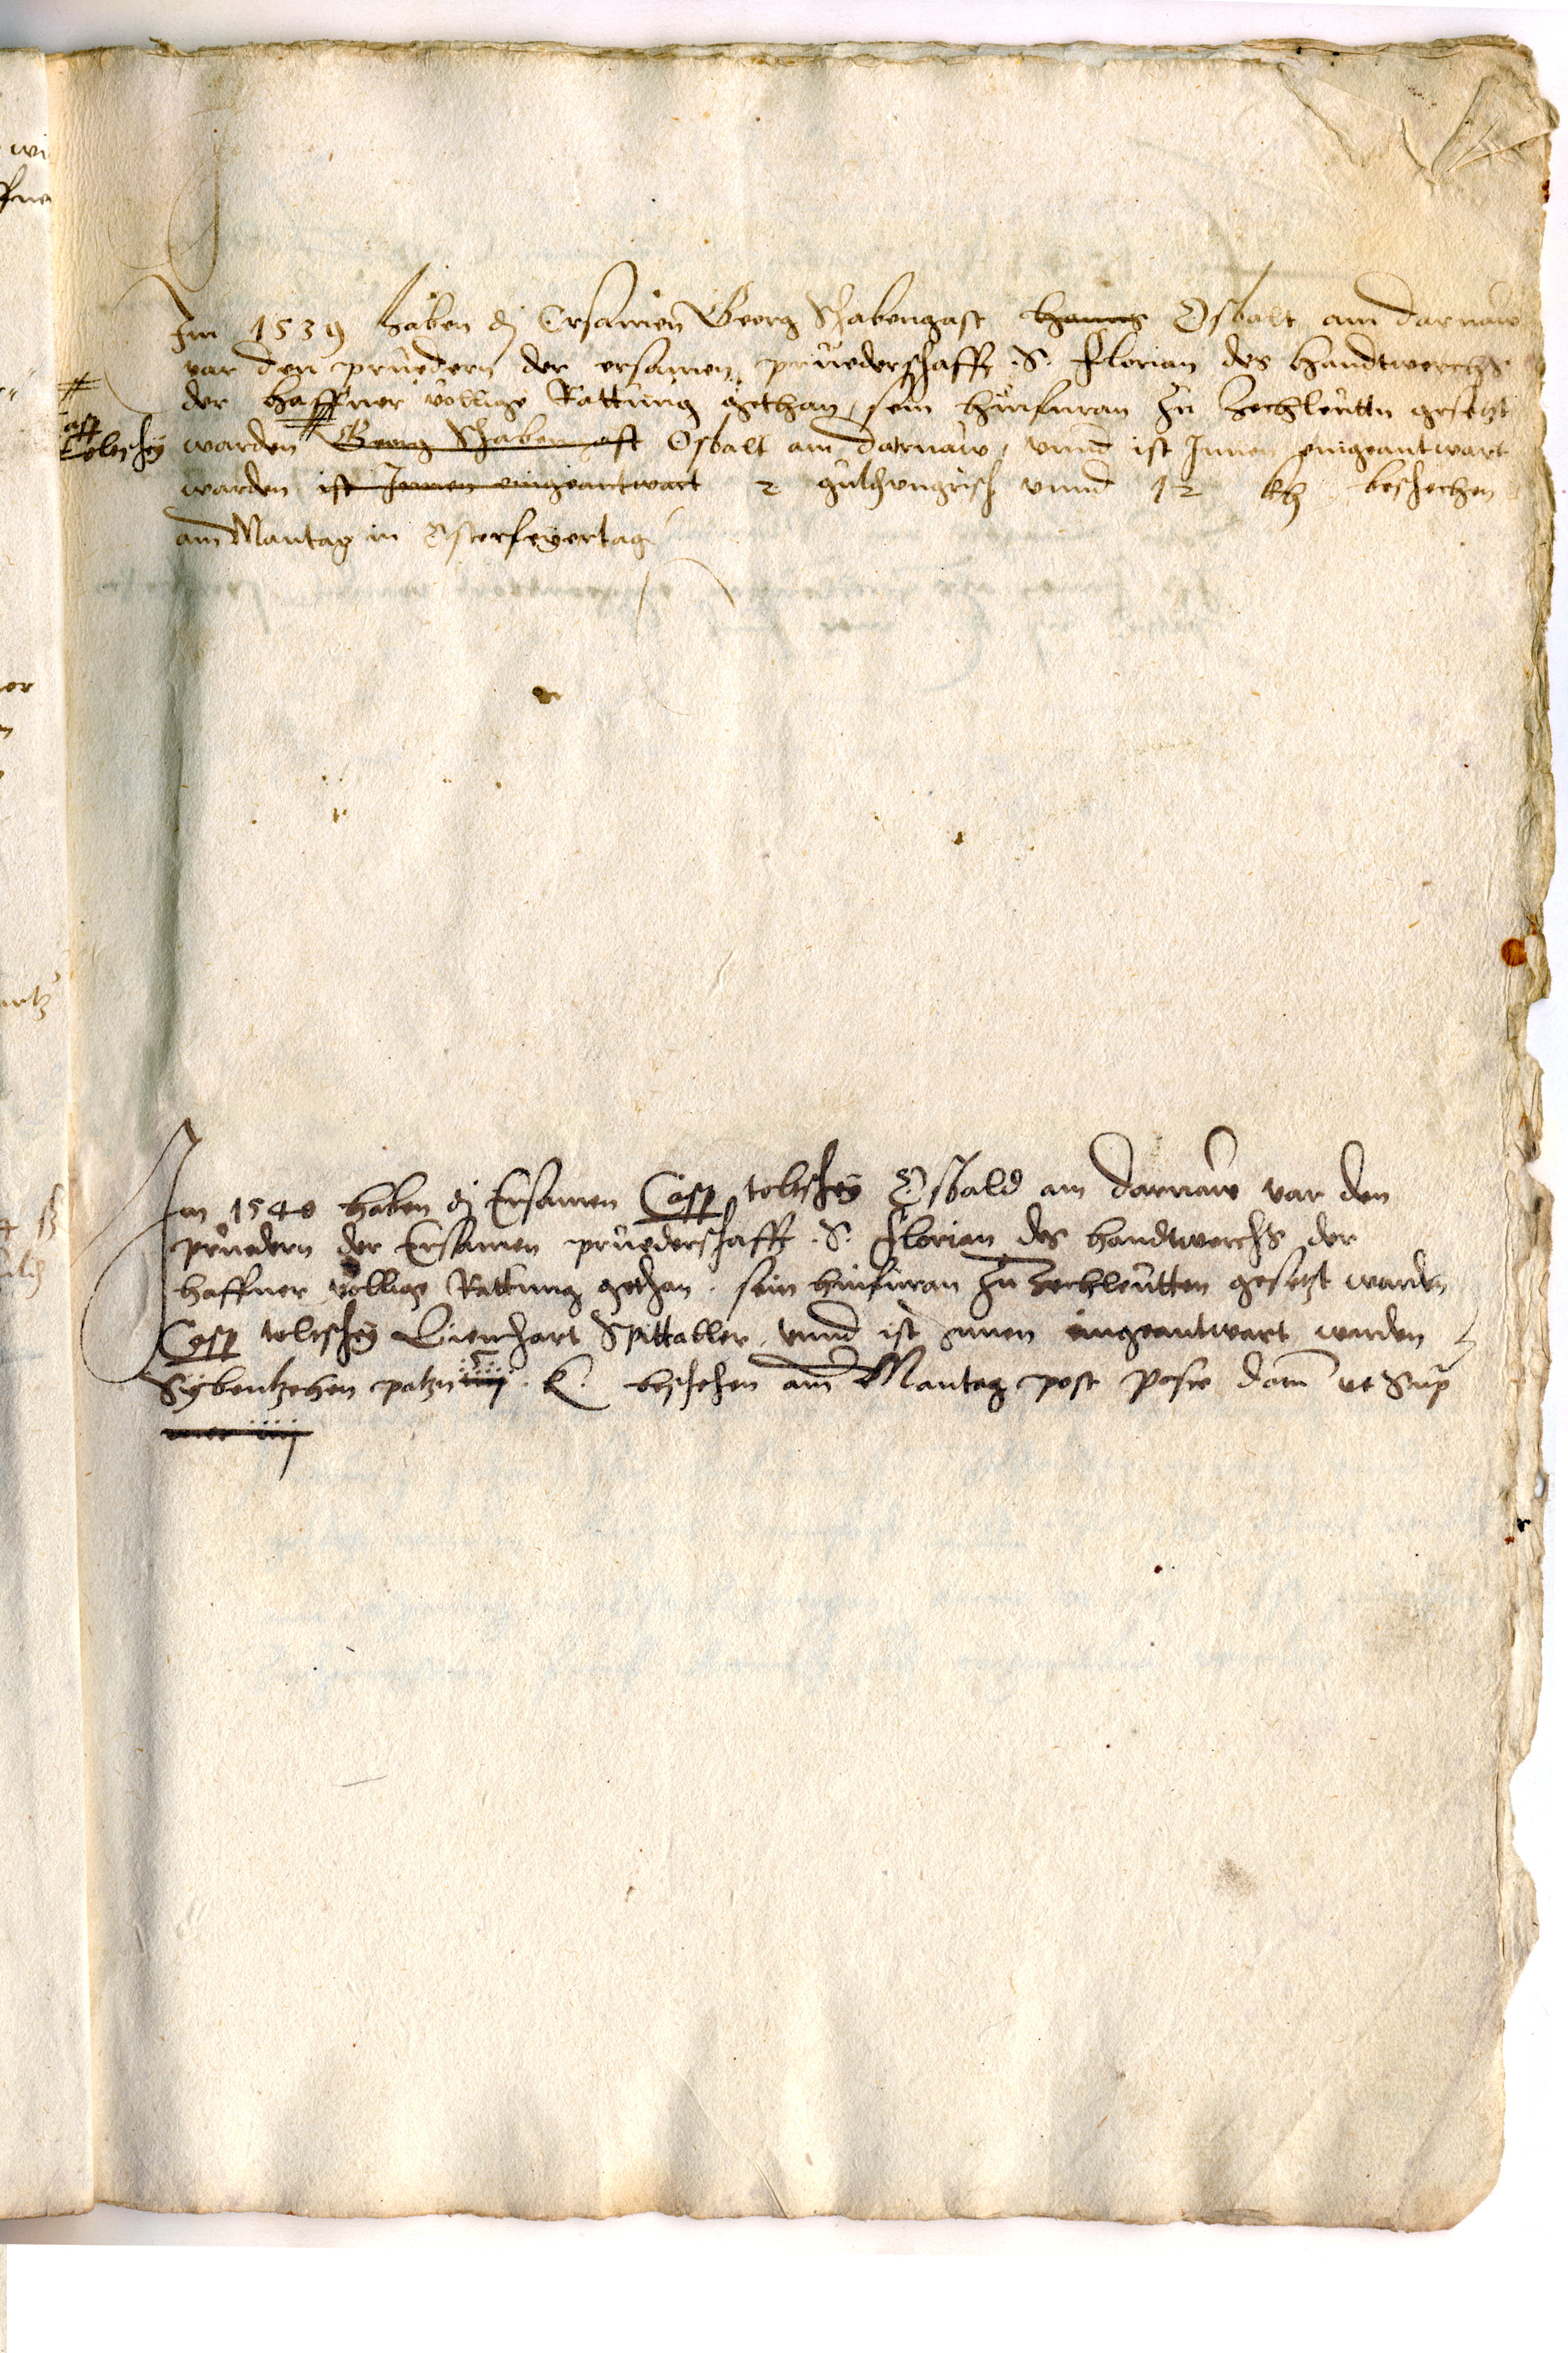 Im 1539 haben dj Ersamen Georg Schabengast hanns Osbalt am darnaw
var den pruedern der ersamen pruederschafft .S. Florian des handtwerchs
der haffner vollige Rattung gethan, sein hinfuran zu Zechleuttn gesetzt
Casp
toltschy
warden Georg Schabengast Osbalt am darnaw, vnnd ist Innen eingeantwart
warden ist Innen eingeantwart 2 vngrisch vnnd 12 beschechen
am Mantag in Osterfeyertag
Im 1540 haben dj Ersamen Casp toltschy Osbald am darnaw var den
pruedern der Ersamen pruederschafft .S. Florian des handtwerchs der
haffner vollige Rattung gethan. sein hinfuran zu Zechleutten gesetzt warden
Casp toltschy Lienhart Spittaller, vnnd ist Innen eingeantwart warden
Sybentzehen patzn beschehen am Mantag post pasce ut Sup
iiij